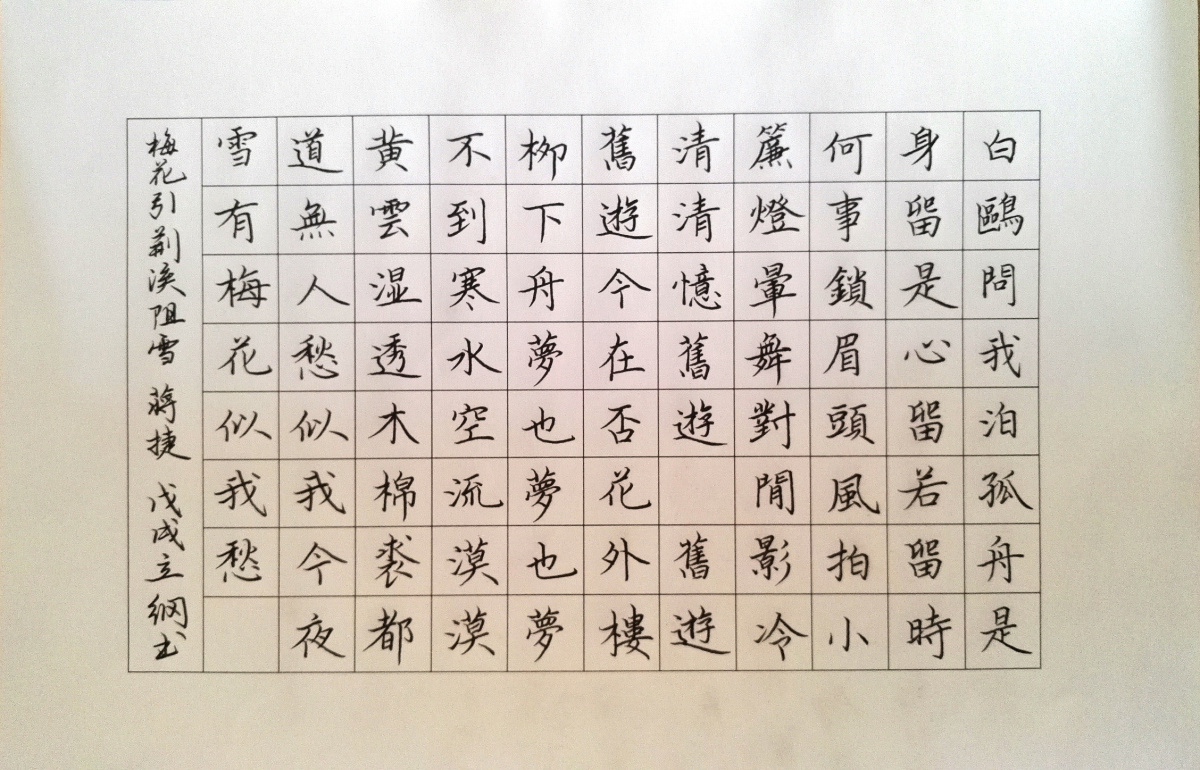 白鷗問我泊孤舟是
身留是心留若留時
何事鎖眉頭風拍小
簾燈暈舞對閒影冷
清清憶舊遊 舊遊
舊遊今在否花外樓
柳下舟夢也夢也夢
不到寒水空流漠漠
黄雲湿透木棉裘都
道無人愁似我今夜
雪有梅花似我愁
梅花引荆溪阻雪 蔣捷 戊戌立綱书